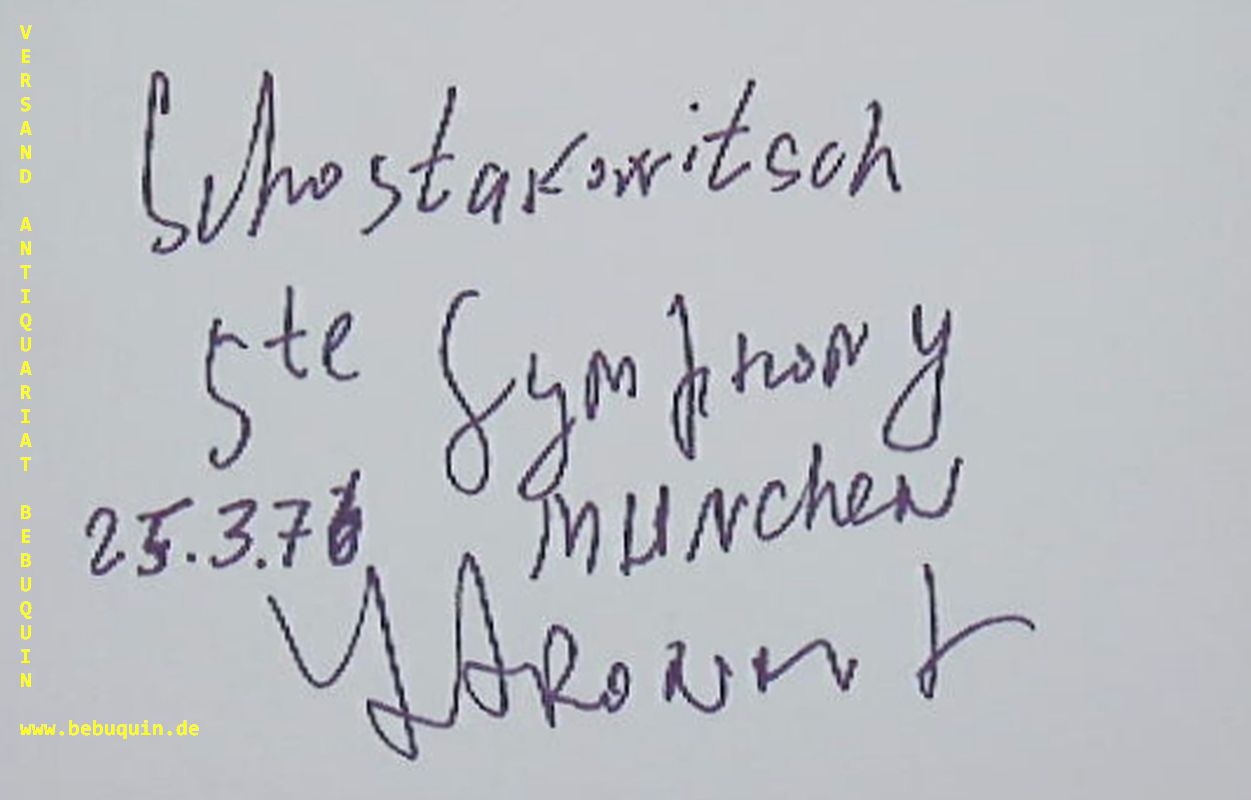 VERSAND ANTIQUARIAT BEBUQUIN
Schostakowitsch
5te Symphony
25.3.76 München
Y Aronovit
www.bebuquin.de